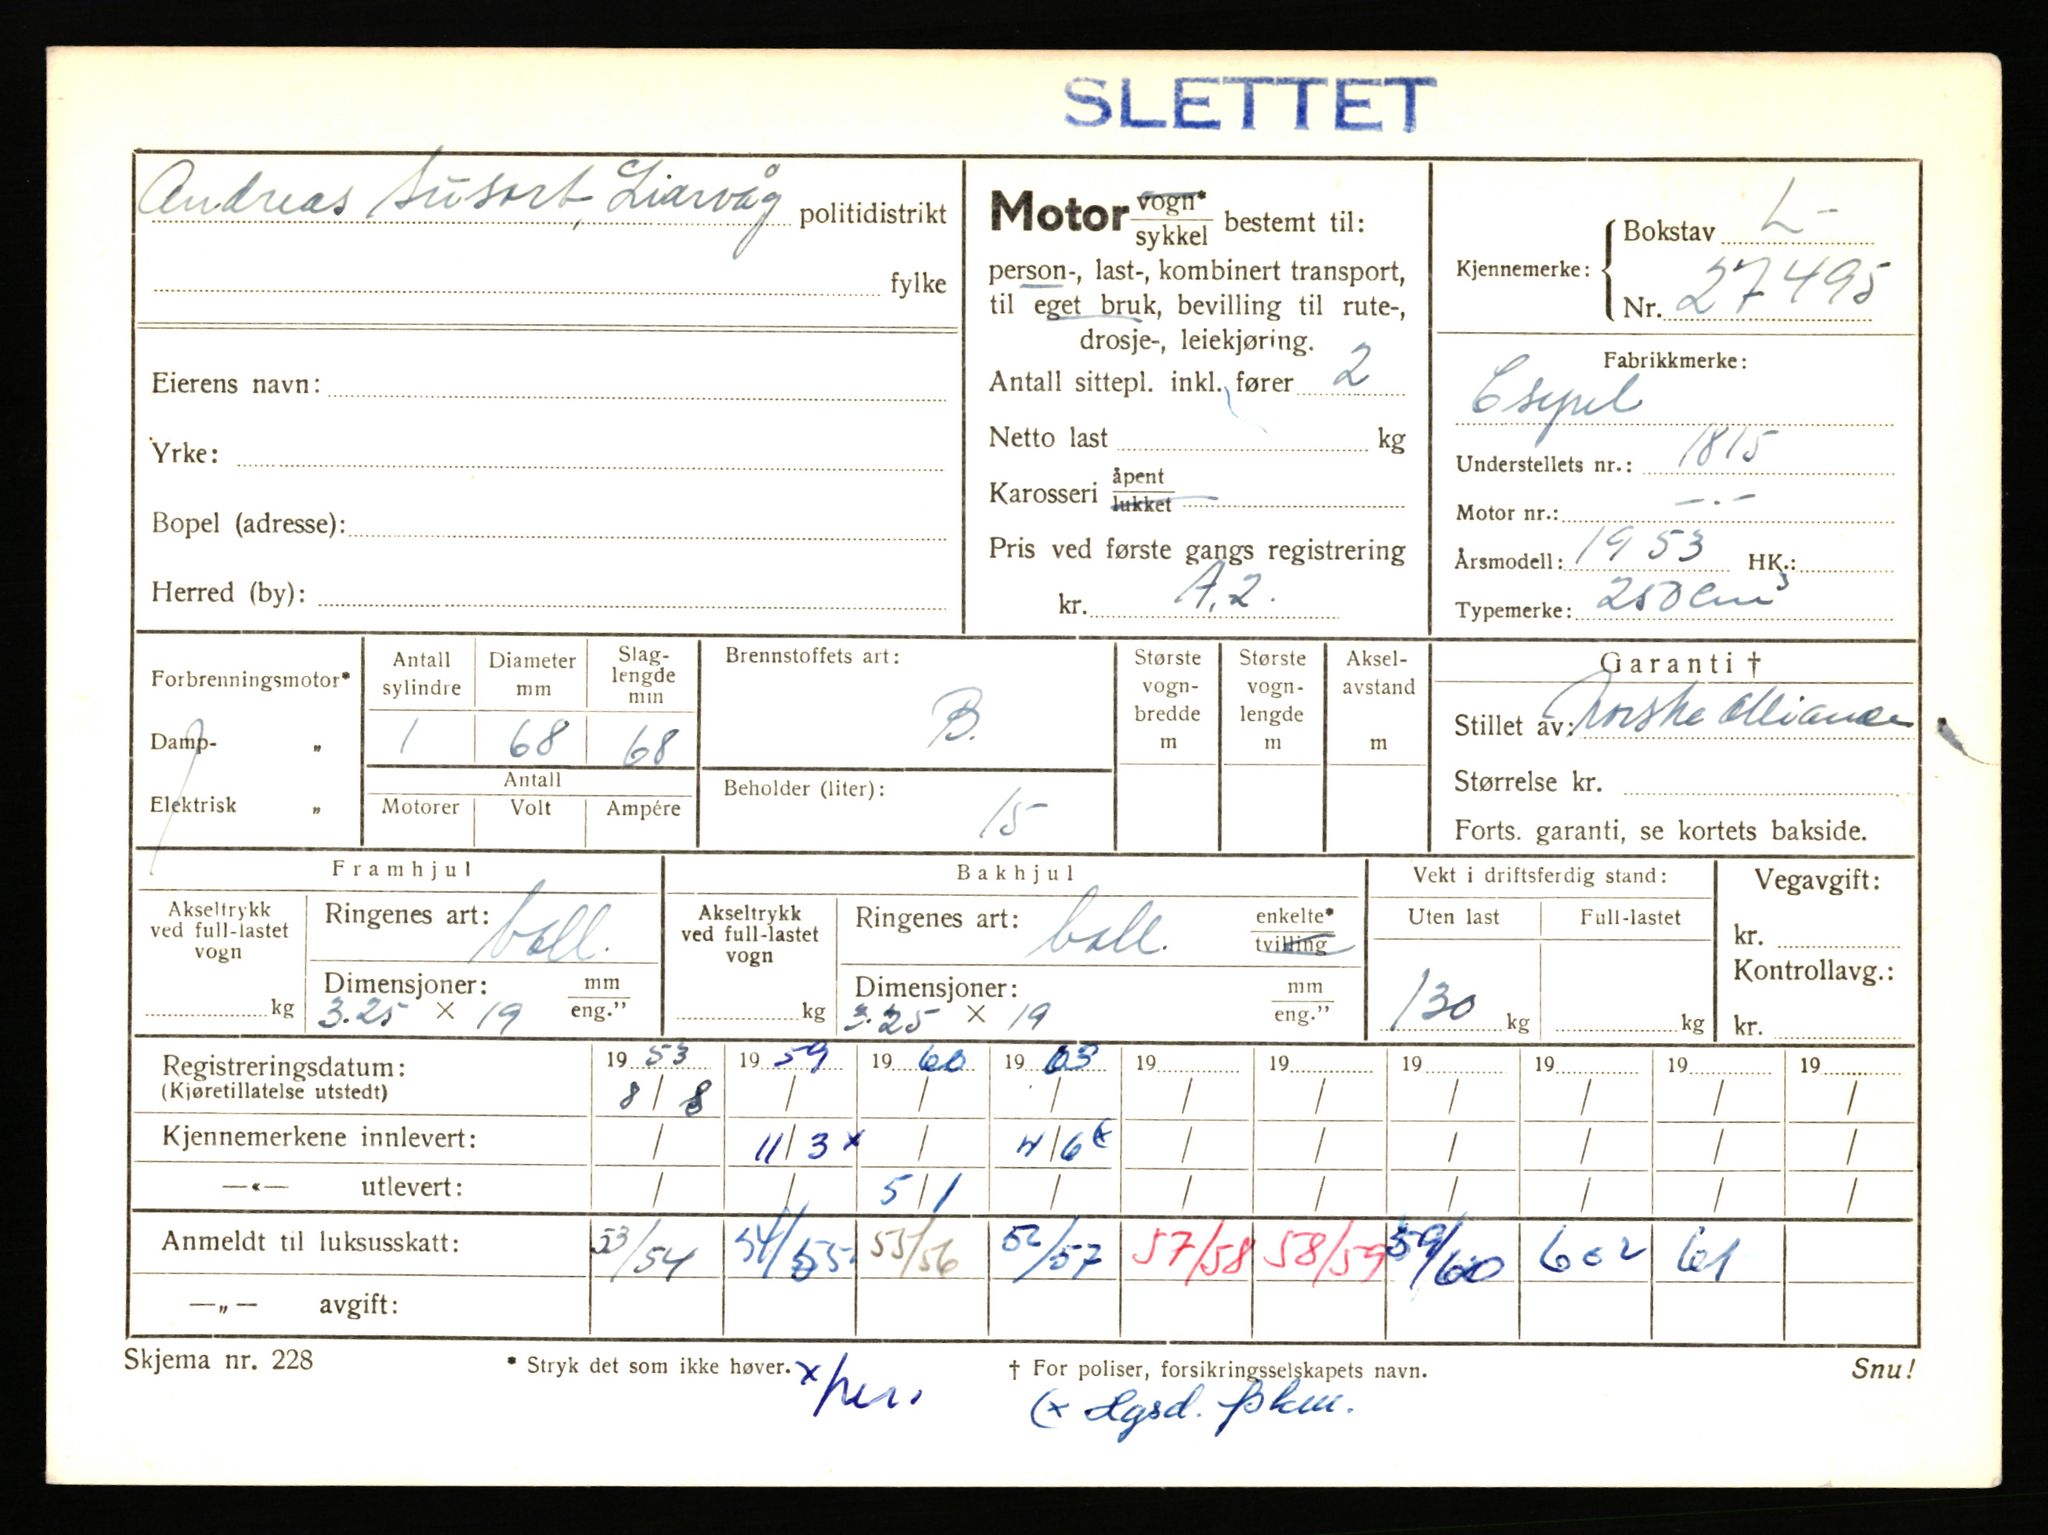 SLETTET
Andreas Susort, Liarvåg politidistrikt
fylke
Eierens navn:
Yrke:
Bopel (adresse):
Herred (by):
Motor vogn* / sykkel bestemt til:
person-, last-, kombinert transport,
til eget bruk, bevilling til rute-,
drosje-, leiekjøring.
Antall sittepl. inkl. fører 2
Netto last kg
Karosseri åpent / lukket
Pris ved første gangs registrering
kr. A.2.
Kjennemerke: Bokstav L-
Nr. 27495
Fabrikkmerke:
Csepel
Understellets nr.: 1815
Motor nr.: —·—
Årsmodell: 1953 HK.:
Typemerke: 250 cm³
Forbrenningsmotor*
Damp- „
Elektrisk „
Antall sylindre 1
Diameter mm 68
Slag-lengde mm 68
Antall
Motorer Volt Ampére
Brennstoffets art: B.
Beholder (liter): 15
Største vogn-bredde m
Største vogn-lengde m
Aksel-avstand m
Garanti †
Stillet av: Norske Alliance
Størrelse kr.
Forts. garanti, se kortets bakside.
Framhjul
Akseltrykk ved full-lastet vogn kg
Ringenes art: ball.
Dimensjoner: mm / eng."
3.25 × 19
Bakhjul
Akseltrykk ved full-lastet vogn kg
Ringenes art: ball. enkelte* / tvilling
Dimensjoner: mm / eng."
3.25 × 19
Vekt i driftsferdig stand:
Uten last Full-lastet
130 kg kg
Vegavgift:
kr.
Kontrollavg.:
kr.
Registreringsdatum: 1953 1959 1960 1963 19 19 19 19 19 19
(Kjøretillatelse utstedt) 8/8 / / / / / / / / /
Kjennemerkene innlevert: / 11/3 x / 4/6 (x / / / / / /
—«— utlevert: / / 5/1 / / / / / / /
Anmeldt til luksusskatt: 53/54 54/55 55/56 56/57 57/58 58/59 59/60 602 61
—„— avgift:
Skjema nr. 228 * Stryk det som ikke høver. † For poliser, forsikringsselskapets navn. Snu!
x/pers
(x Hgsd. þkm.